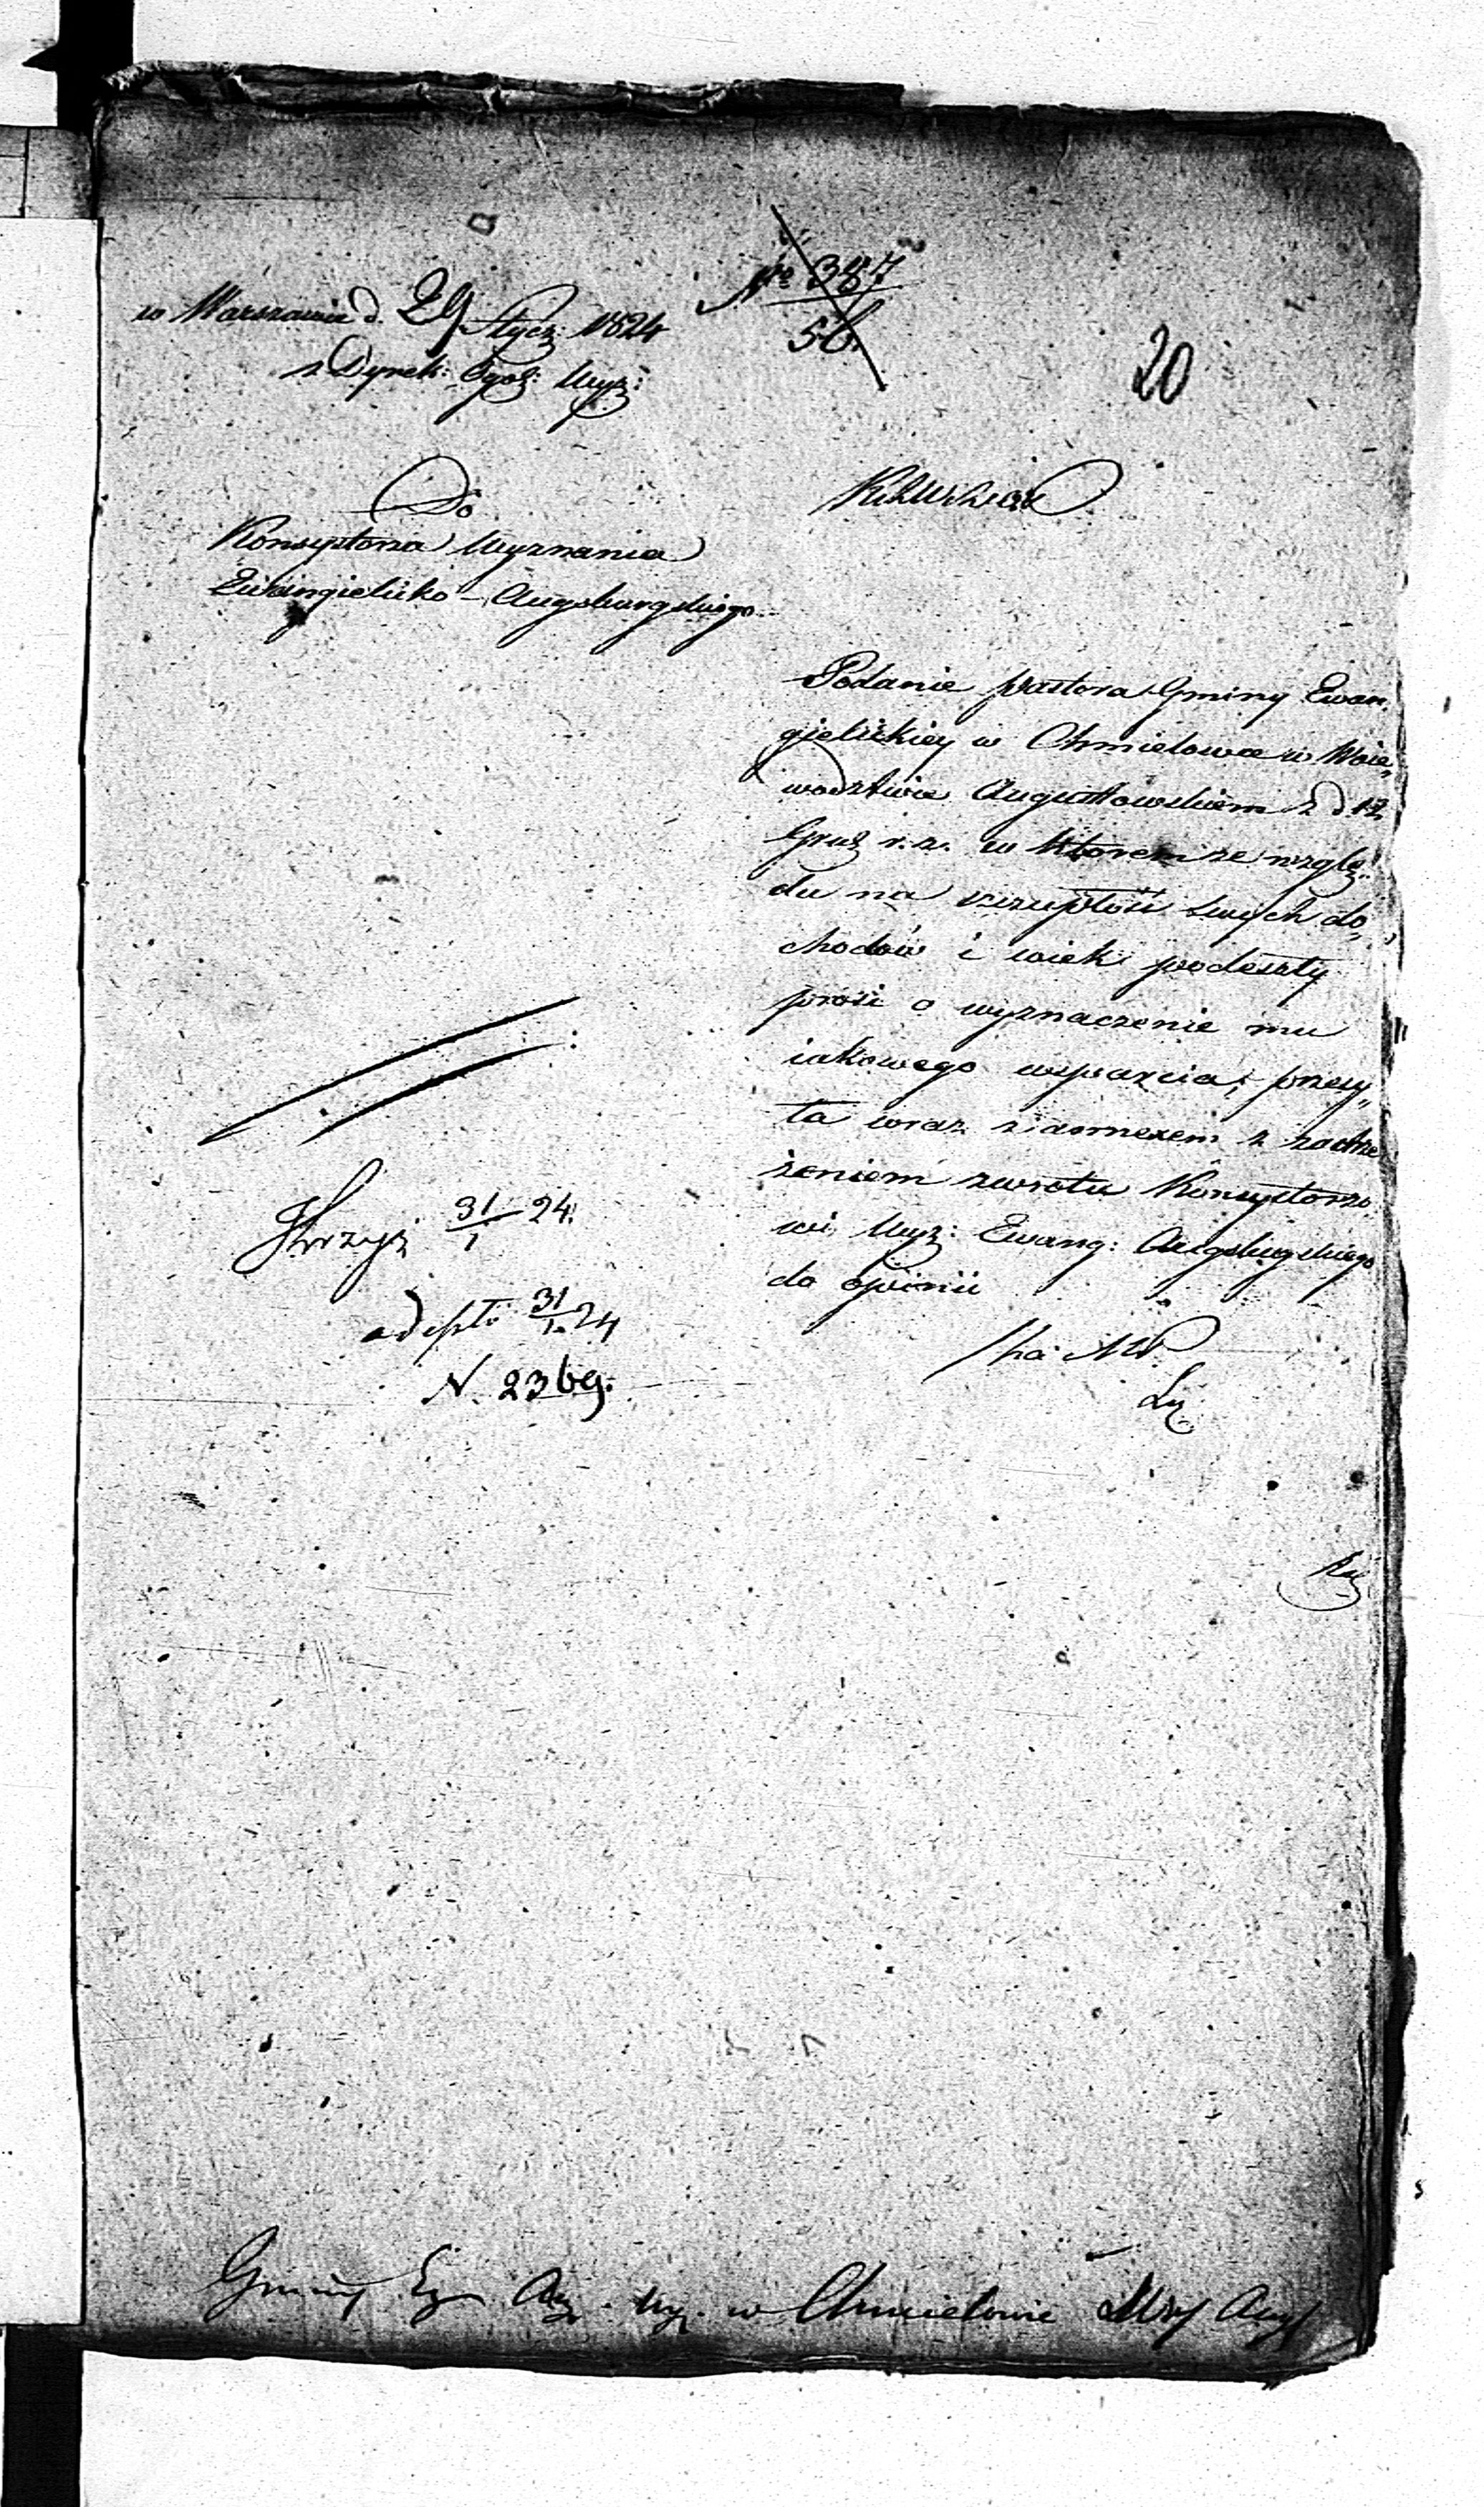 w Warszawie d. 29 Stycz: 1824
z Dyrek: Ogol: Wyz:
Nro 387
56.
20
Do
Konsystorza Wyznania
Ewangielicko-Augsburgskiego
KRZWRZiOP
Podanie Pastora Gminy Ewan„
gielickiey w Chmielowce w Woie„
wodztwie Augustowskiem z d 12
Grud r. z. w którem ze wzglę„
du na szczupłość swych do„
chodów i wiek podeszły
prosi o wyznaczenie mu
iakowego wsparcia, przesy„
ła wraz z annexem z zastrze„
żeniem zwrotu Konsystorzo„
wi Wyz: Ewang: Augsburgskiego
do opinii
31/1 24.
ad expt: 31/1 24
N. 2369.
Gminy Ew Aug. Wyz. w Chmielowie Wdz Aug